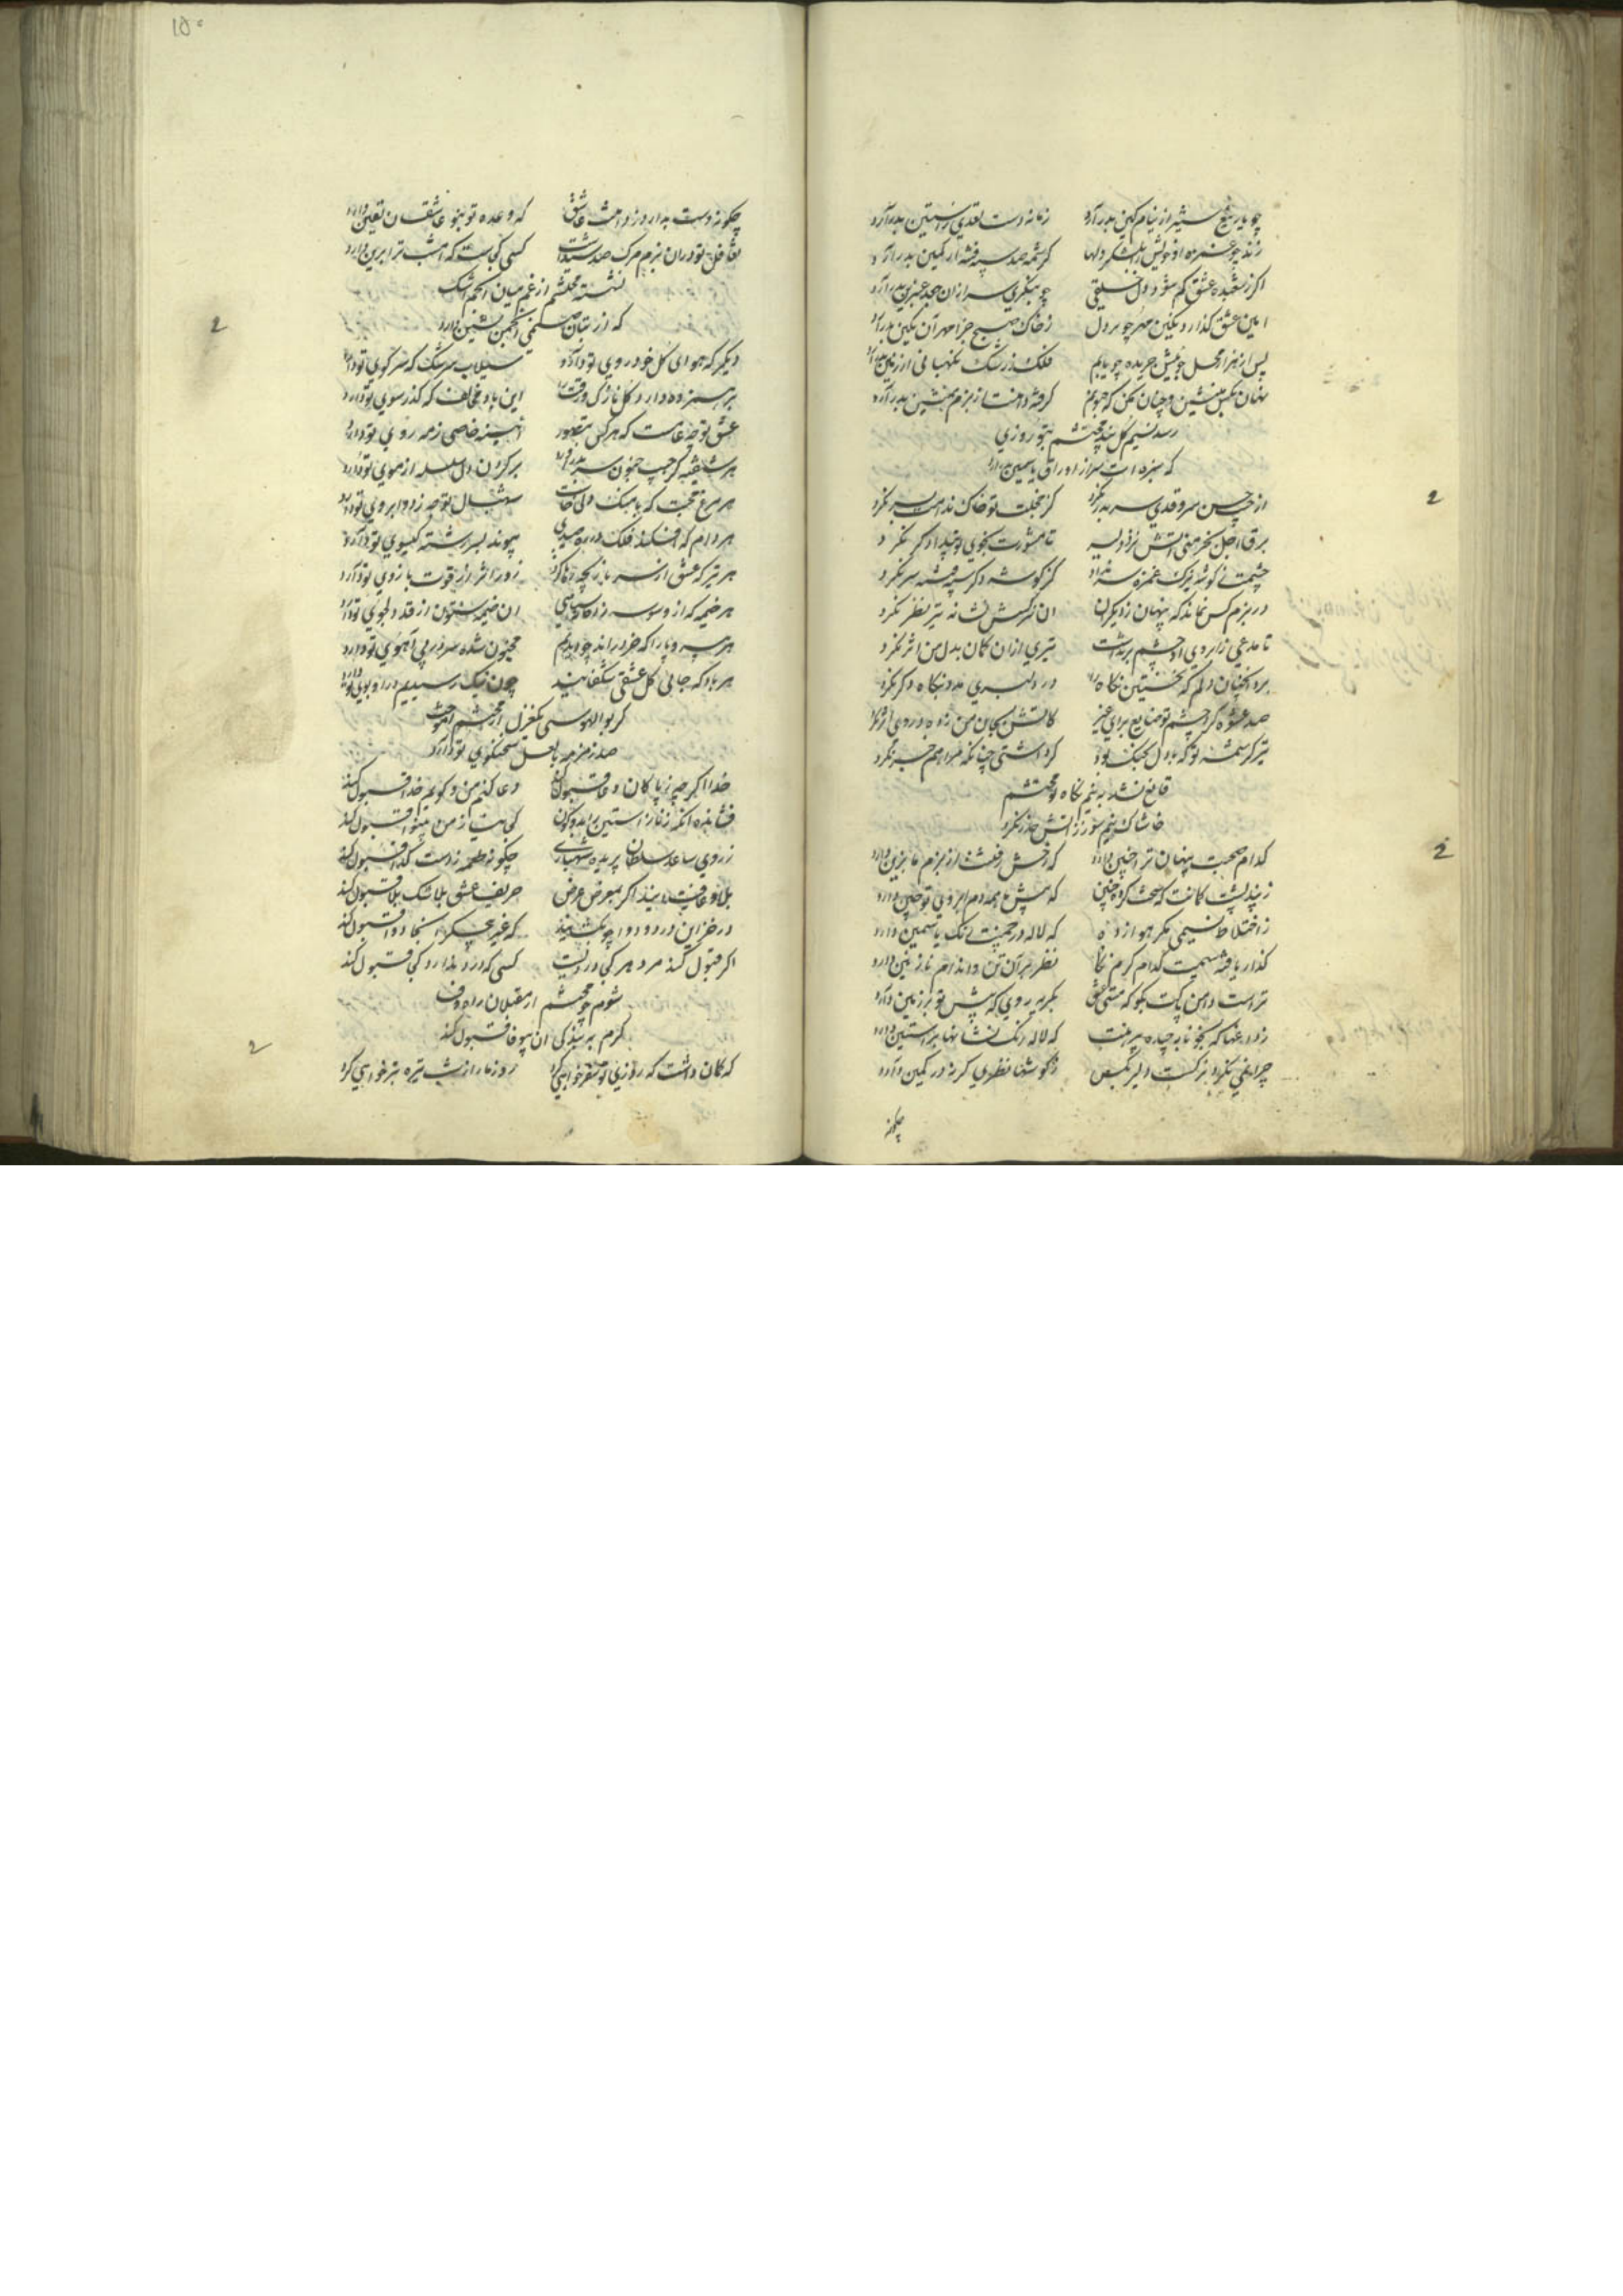 چو یار تیغ ستیز از نیام کین بدر آرد زمانه دست تعدی ز آستین بدر آرد
زند چو غمزه او خویش را بلشکر دلها کرشمه صد سپه فتنه از کمین بدر آرد
اگر ز شعبده عشق کم شود دل خلقی چو بنگری سر از ان جعد عنبرین بدر آرد
امین عشق گذارد نگین مهر چو بر دل ز خاک هیچ جز مهر آن نگین بدر آرد
پس از هزار محل چو پیش جریده چو یابم فلک ز رشک نگهبانی از زمین بدر آرد
نهان بکس منشین وچنان مکن که جنونم گرفته دامنت از بزم همنشین بدر آرد
رسد نسیم گل پند محتشم بتو روزی
که سبزه ات سر از اوراق یاسمین بدر آرد
از جیب حسن سرو قدی سر بدر نکرد کز خجلت تو خاک ندامت بسر نکرد
برق اجل بخرمنی آتش نزد دلیر تا مشورت بخوی تو بیدادگر نکرد
چشمت ز گوشه ترک غمزه سر نداد کز گوشه دگر سپه فتنه سر نکرد
در بزم کس نماند که پنهان ز دیگران ان نرگسش نشانه تیر نظر نکرد
تا مدعی ز ابروی او چشم برنداشت تیری از ان کمان بدل من اثر نکرد
برد انچنان دلم که نخستین نگاه را در دلبری مدد بنگاه دگر نکرد
صد عشوه کرد چشم تو ضایع برای غیر کاتش بجان من زد و در وی اثر نکرد
تیر کرشمه تو که با دل بجنگ بود کرد آشتی چنانکه مرا هم خبر نکرد
قانع نشد به نیم نگاه تو محتشم
خاشاک نیم سوز ز آتش حذر نکرد
کدام صحبت پنهان ترا چنین دارد که رخش رفتنت از بزم ما بزین دارد
ز پند پشت کمانت که سخت کرده چنین که پیش ما همه دم ابروی تو چین دارد
ز اختلاط نسیمی مگر هوا زده که لاله در چمنت رنگ یاسمین دارد
گذار یافته سیمت کدام گرم نگاه نظر بر آن تن و اندام نازنین دارد
تراست دامن پاکت بگو که مستی عشق بگریه روی که پیش تو بر زمین دارد
چراغی نکرد نرگست دلیر بکس ز گوشها نظری گر نه در کمین دارد
چگونه
چگونه دست بدارد ز دامنت عاشق که وعده تو بنو عاشقان یقین دارد
تغافل تو در ان بزم مرگ صد شیداست کسی کجاست که امشب ترا برین دارد
نشسته محتشم از غم میان انجم اشک
که از بتان صنمی انجمن نشین دارد
دیگر که هوای گل خودروی تو دارد سیلاب سرشک که سر کوی تو دارد
بر هم زده دارد گل نازک ورقت را این باد مخالف که گذر سوی تو دارد
عشق تو چه عامست که هر کس بتصور آئینه خاصی ز مه روی تو دارد
هر شیفته کز جیب جنون سر بدر آرد بر گردن دل سلسله از موی تو دارد
هر مرغ محبت که باهنگ دلی خاست سر ببال توجه ز دو ابروی تو دارد
هر دام که افکند فلک در ره صیدی پیوند بسر رشته گیسوی تو دارد
هر تیر که عشق از سر بازیچه رها کرد زور اثر از قوت بازوی تو دارد
هر خیمه که از وسوسه زد خانه سیاهی ان خیمه ستون از قد دلجوی تو دارد
هر بی سر و پا را که خرد راند چو دیدم مجنون شده سر در پی آهوی تو دارد
هر باد که جائی گل عشقی شگفانید چون نیک رسیدیم در او بوی تو دارد
گر بوالهوسی یک غزل از محتشم آموخت
صد زمزمه با لعل سخنگوی تو دارد
خدا اگر چه ز پاکان دعا قبول کند دعا کنم من و گویم خدا قبول کند
فشانده آنکه ز ناز آستین برین دو کون کی التفات ز من بینوا قبول کند
ز روی ساعد سلطان پریده شهبازی چگونه طعمه ز دست گدا قبول کند
بلا و عافیت آیند اگر بمعرض عرض حریف عشق بلاشک بلا قبول کند
در خزاین درد و دوا چو بگشایند که غیر بی‌جگر آنجا دوا قبول کند
اگر قبول کند مرد هر کجا دردیست کسی که درد ندارد کجا قبول کند
شوم چو محتشم از مقبلان راه وفا
گرم به بندگی ان بیوفا قبول کند
که گمان داشت که روزی تو سفر خواهی کرد روز ما را ز شب تیره بتر خواهی کرد